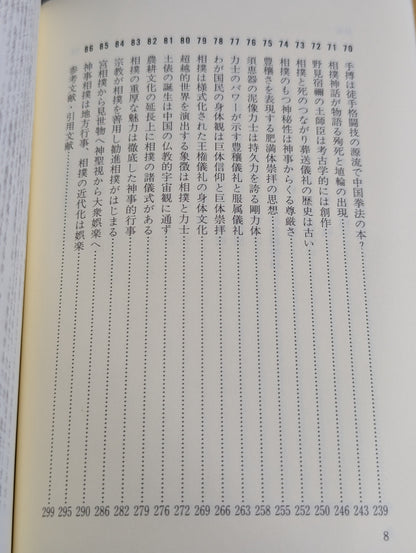 70 手搏は徒手格闘技の源流で中国拳法の本? 239
71 相撲神話が物語る殉死と埴輪の出現 243
72 野見宿禰の土師臣は考古学的には創作 246
73 相撲と死のつながり葬送儀礼の歴史は古い 250
74 相撲のもつ神秘性は神事からくる尊厳さ 252
75 豊穣さを表現する肥満体崇拝の思想 255
76 須恵器の泥像力士は持久力を誇る剛力体 258
77 力士のパワーが示す豊穣儀礼と服属儀礼 262
78 わが国民の身体観は巨体信仰と巨体崇拝 266
79 相撲は様式化された王権儀礼の身体文化 269
80 超越的世界を演出する象徴は相撲と力士 272
81 土俵の誕生は中国の仏教的宇宙観に通ず 276
82 農耕文化の延長上に相撲の諸儀式がある 279
83 相撲の重厚な魅力は徹底した神事的行事 282
84 宗教が相撲を善用し勧進相撲がはじまる 286
85 宮相撲から見世物へ神聖視から大衆娯楽へ 290
86 神事相撲は地方行事、相撲の近代化は娯楽 295
参考文献・引用文献 299
8